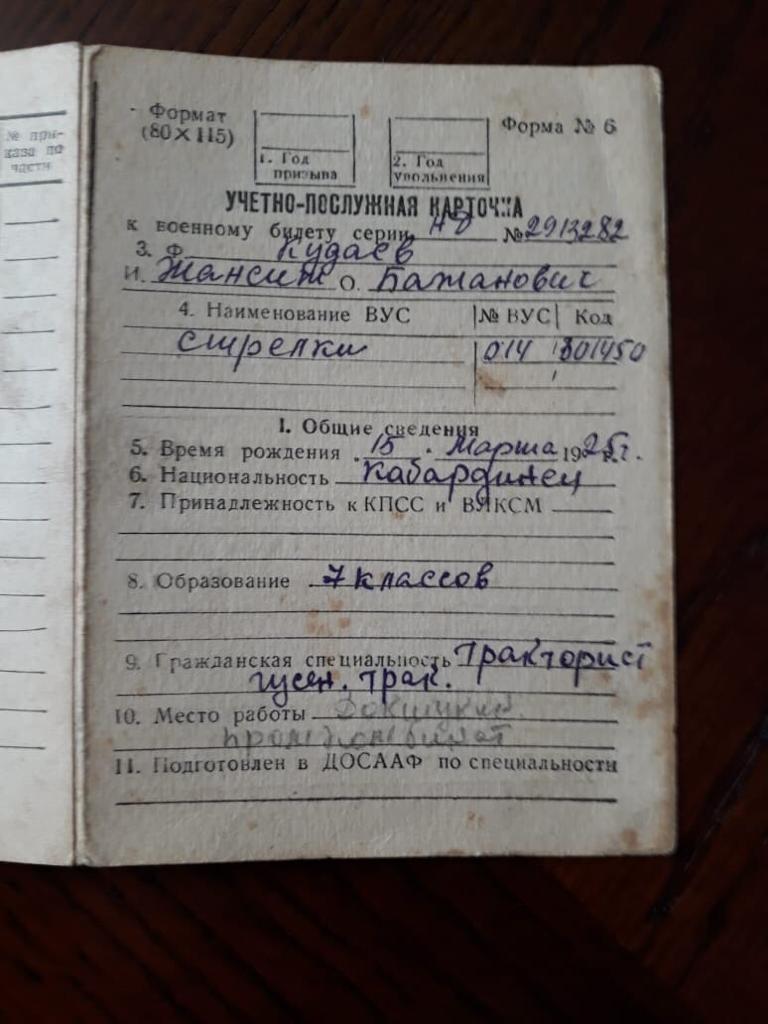 № при-
каза по
части
Формат
(80×115)
1. Год
призыва
2. Год
увольнения
Форма № 6
УЧЕТНО-ПОСЛУЖНАЯ КАРТОЧКА
к военному билету серии НО №2913282
3. Ф. Кудаев
И. Жансит О. Бажанович
4. Наименование ВУС № ВУС Код
стрелки 014 301450
I. Общие сведения
5. Время рождения 15 Марта 1925г.
6. Национальность Кабардинец
7. Принадлежность к КПСС и ВЛКСМ
8. Образование 7 классов
9. Гражданская специальность Тракторист
гусен. трак.
10. Место работы Докшукий
промкомбинат
11. Подготовлен в ДОСААФ по специальности